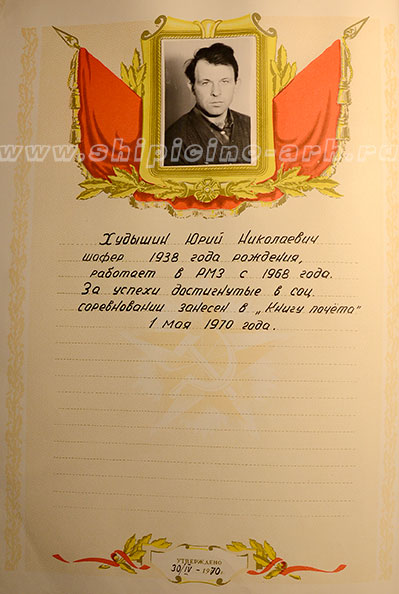 www.shipicino-ark.ru
Худышин Юрий Николаевич
шофер 1938 года рождения,
работает в РМЗ с 1968 года.
За успехи достигнутые в соц.
соревновании занесен в „Книгу почёта"
1 мая 1970 года.
УТВЕРЖДЕНО
30/IV - 1970г.